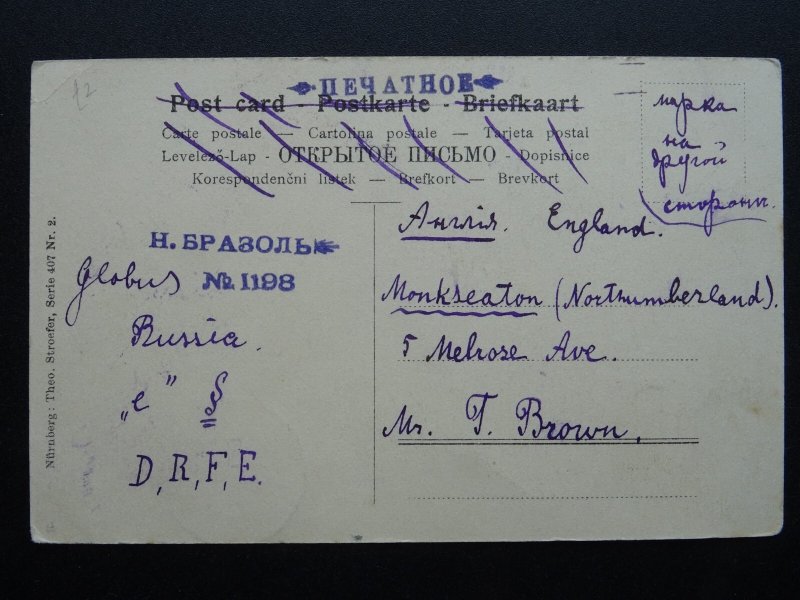 12
ПЕЧАТНОЕ
Post card - Postkarte - Briefkaart
Carte postale — Cartolina postale — Tarjeta postal
Levelező-Lap - ОТКРЫТОЕ ПИСЬМО - Dopisnice
Korespondenčni listek — Brefkort — Brevkort
марка
на
другой
стороны.
Н. БРАЗОЛЬ
№ 1198
Globus
Russia.
„e" §
D, R, F, E.
Англія. England.
Monkseaton (Northumberland).
5 Melrose Ave.
Mr. T. Brown.
Nürnberg: Theo. Stroefer, Serie 407 Nr. 2.